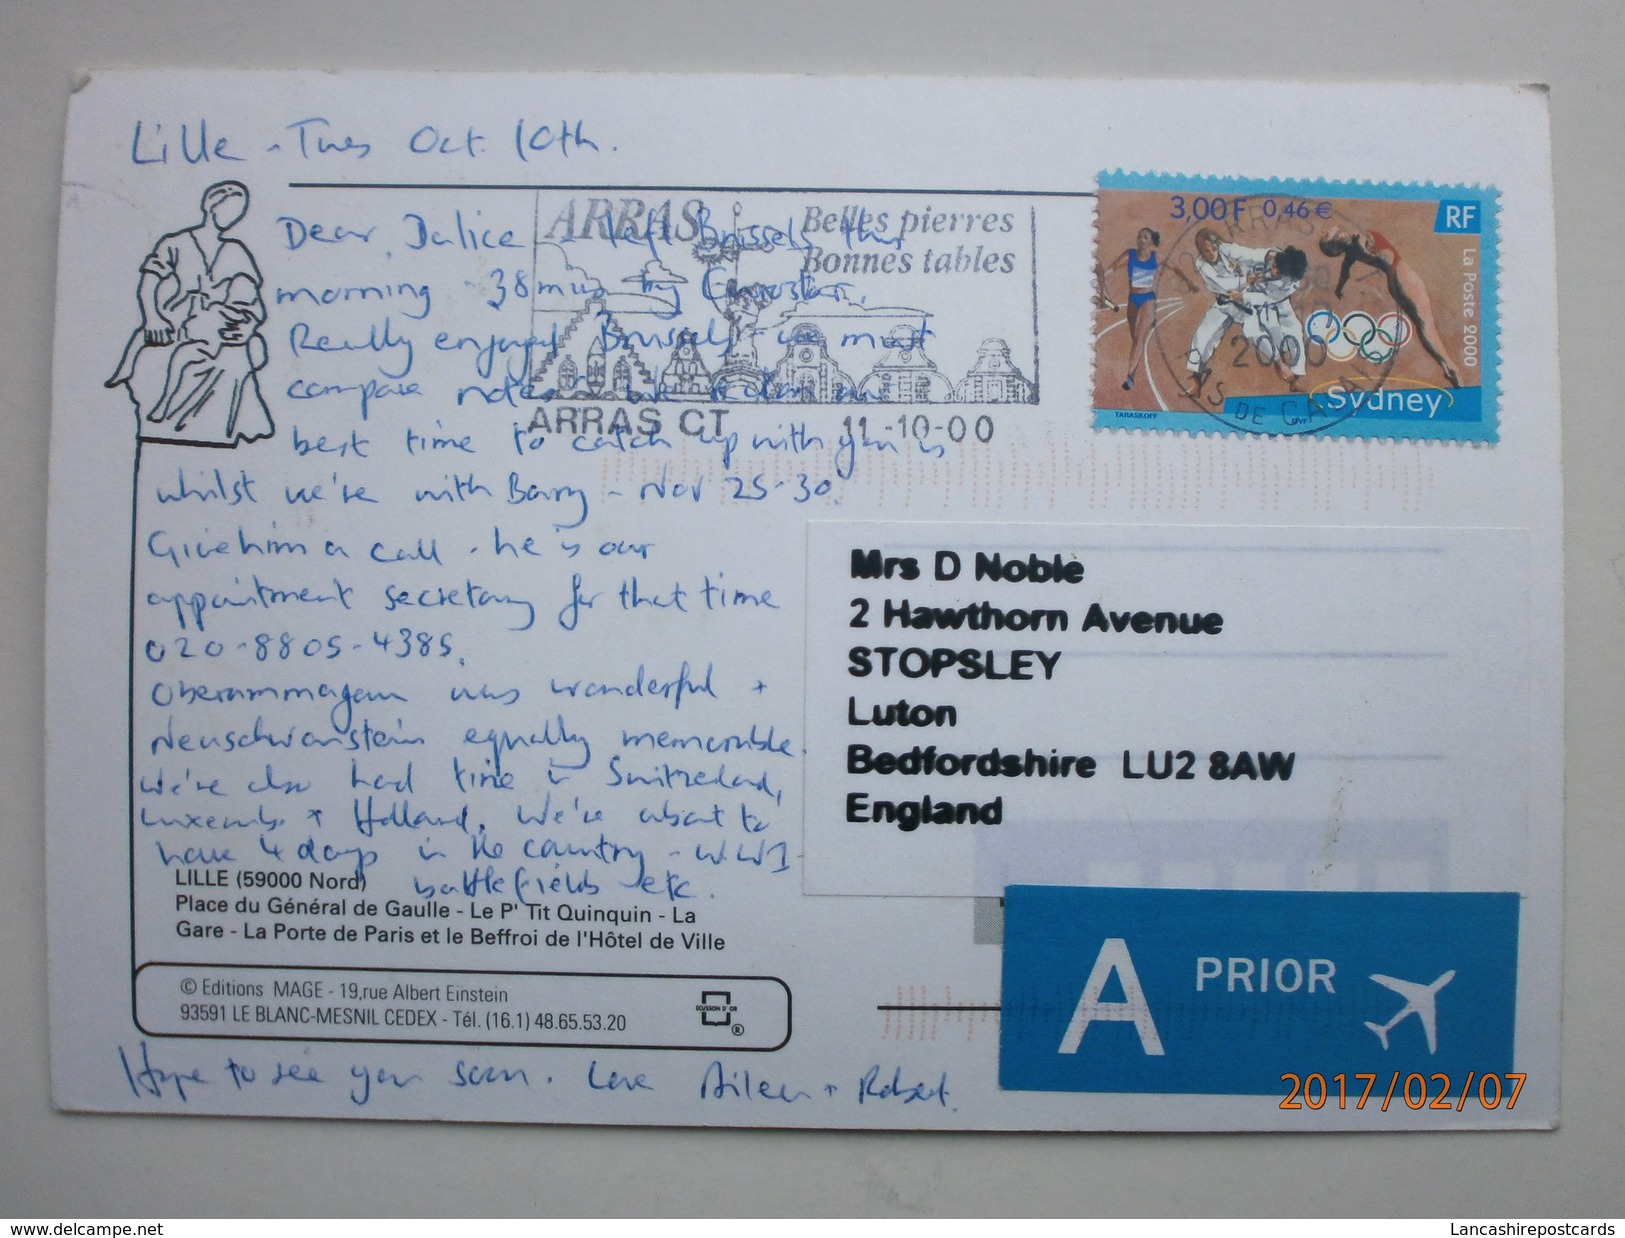 Lille - Tues Oct. 10th.
Dear Dalice - left Brussels this
morning - 38 mins by Eurostar.
Really enjoyed Brussels - we must
compare notes
best time to catch up with you is
whilst we're with Barry - Nov 25-30
Give him a call - he is our
appointment secretary for that time
020-8805-4385.
Oberammagau was wonderful +
Neuschwanstein equally memorable.
We've also had time in Switzerland,
Luxemb + Holland. We're about to
have 4 days in the country - WW1
battlefields etc.
ARRAS
Belles pierres
Bonnes tables
ARRAS CT 11-10-00
3,00F 0,46€
RF
La Poste 2000
ARRAS
2000
PAS DE CALAIS
TARASKOFF
Sydney
Mrs D Noble
2 Hawthorn Avenue
STOPSLEY
Luton
Bedfordshire LU2 8AW
England
LILLE (59000 Nord)
Place du Général de Gaulle - Le P' Tit Quinquin - La
Gare - La Porte de Paris et le Beffroi de l'Hôtel de Ville
© Editions MAGE - 19,rue Albert Einstein
93591 LE BLANC-MESNIL CEDEX - Tél. (16.1) 48.65.53.20
ECUSSON D'OR
®
A PRIOR
Hope to see you soon. Love Aileen + Robert.
2017/02/07
www.delcampe.net
Lancashirepostcards